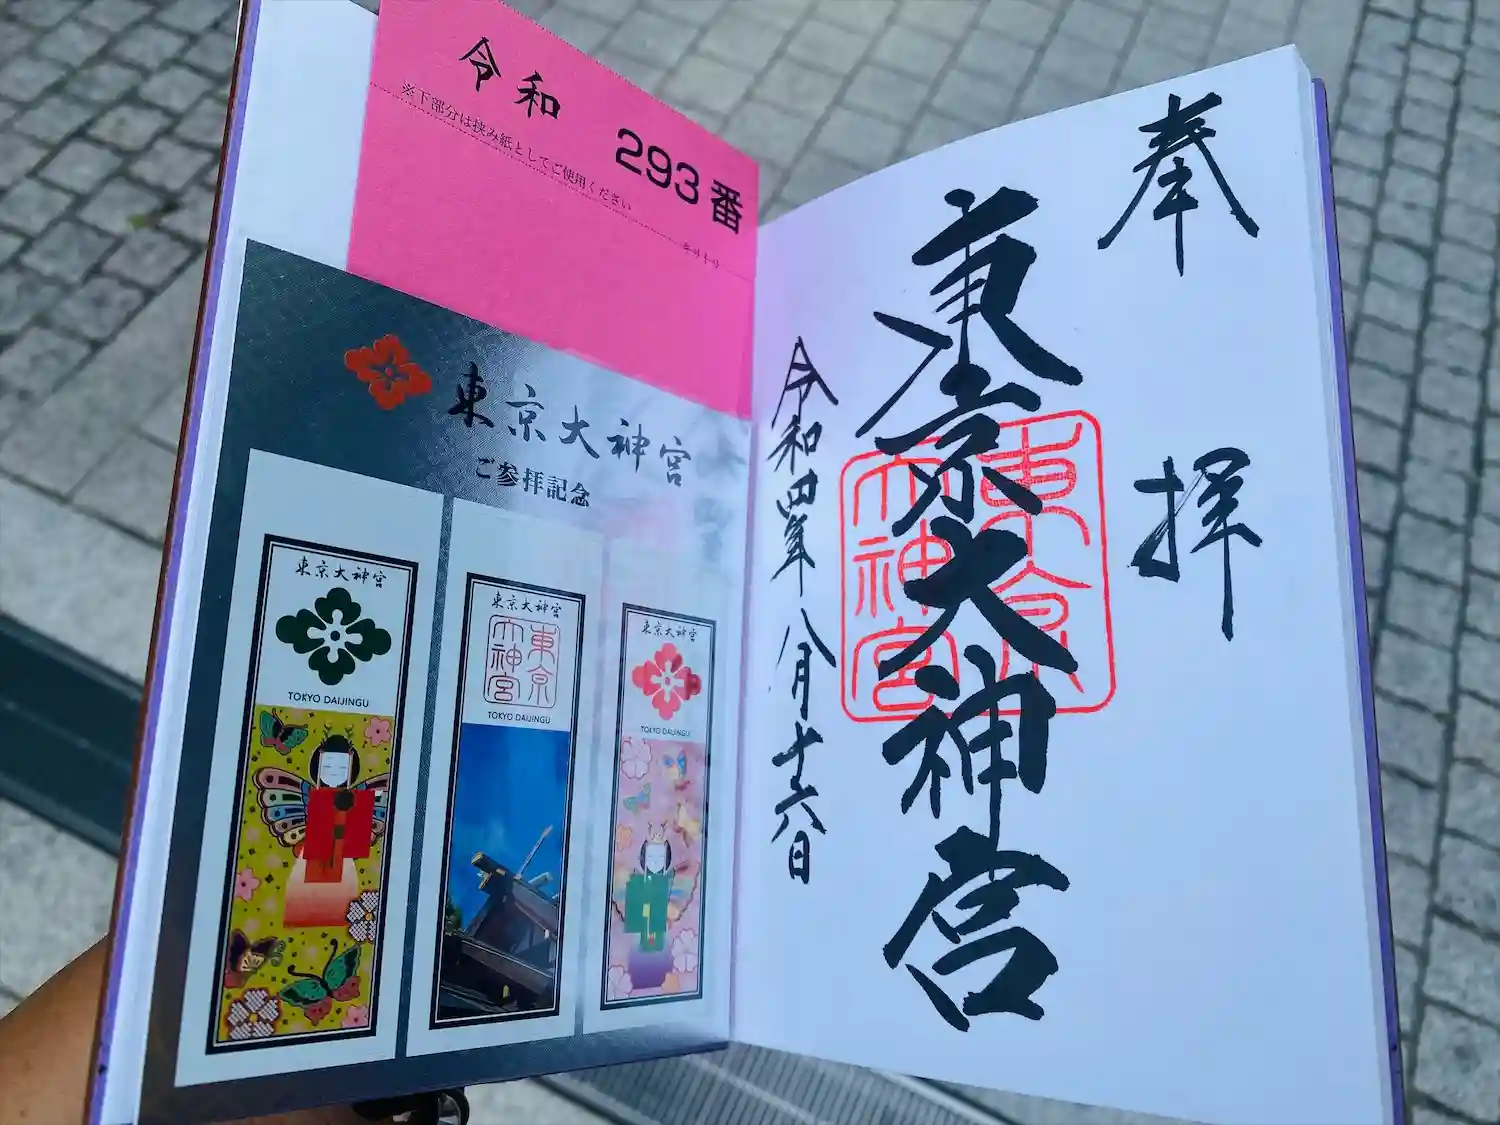 令和 293番
※下部分は挟み紙としてご使用ください
キリトリ
東京大神宮
ご参拝記念
東京大神宮
TOKYO DAIJINGU
東京大神宮
東京大神宮
TOKYO DAIJINGU
東京大神宮
TOKYO DAIJINGU
奉拝
東京大神宮
東京大神宮
令和四年八月十六日